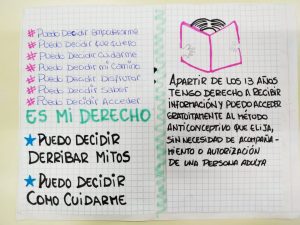 #Puedo Decidir Empoderarme
#Puedo Decidir Que quiero
#Puedo Decidir Cuidarme
#Puedo Decidir mi Camino
#Puedo Decidir Disfrutar
#Puedo Decidir Saber
#Puedo Decidir Acceder
ES MI DERECHO
PUEDO DECIDIR
DERRIBAR MITOS
PUEDO DECIDIR
COMO CUIDARME
APARTIR DE LOS 13 AÑOS
TENGO DERECHO A RECIBIR
INFORMACIÓN Y PUEDO ACCEDER
GRATUITAMENTE AL MÉTODO
ANTICONCEPTIVO QUE ELIJA,
SIN NECESIDAD DE ACOMPAÑA-
MIENTO O AUTORIZACIÓN
DE UNA PERSONA ADULTA